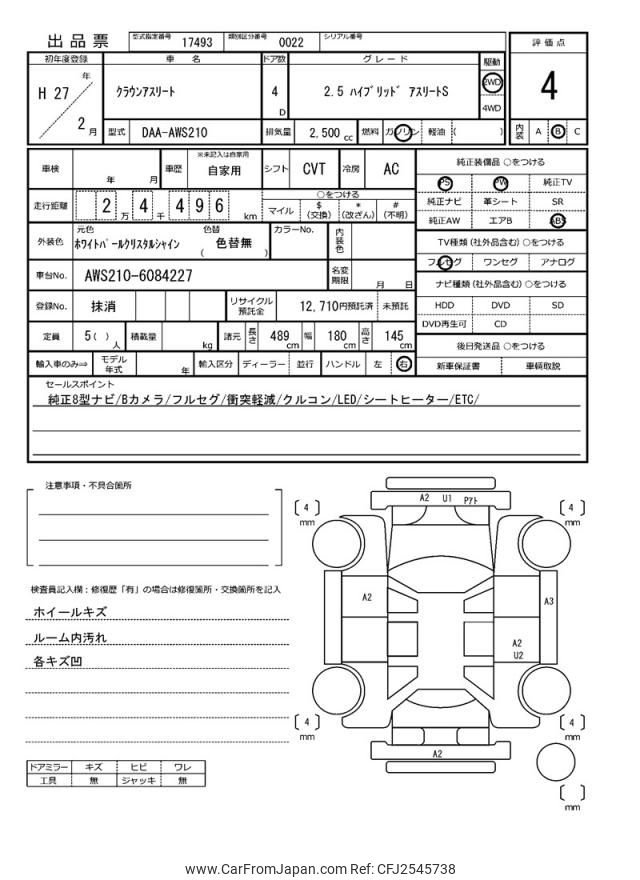 出品票 型式指定番号 17493 類別区分番号 0022 シリアル番号
評価点
4
内装 A B C
初年度登録 車名 ドア数 グレード 駆動
H 27 年 2 月 クラウンアスリート 4 D 2.5 ハイブリッド アスリートS 2WD 4WD
型式 DAA-AWS210 排気量 2,500 cc 燃料 ガソリン 軽油 ( )
車検 年 月 車歴 ※未記入は自家用 自家用 シフト CVT 冷房 AC
走行距離 2 万 4 千 4 9 6 km
○をつける
マイル $ (交換) * (改ざん) # (不明)
外装色 元色 ホワイトパールクリスタルシャイン 色替 ( 色替無 ) カラーNo. 内装色
車台No. AWS210-6084227 名変期限 月 日
登録No. 抹消 リサイクル預託金 12,710円預託済 未預託
定員 5( ) 人 積載量 kg 諸元 長さ 489 cm 幅 180 cm 高さ 145 cm
輸入車のみ⇒ モデル年式 年 輸入区分 ディーラー 並行 ハンドル 左 右
純正装備品 ○をつける
PS PW 純正TV
純正ナビ 革シート SR
純正AW エアB ABS
TV種類(社外品含む) ○をつける
フルセグ ワンセグ アナログ
ナビ種類(社外品含む) ○をつける
HDD DVD SD
DVD再生可 CD
後日発送品 ○をつける
新車保証書 車輌取説
セールスポイント
純正8型ナビ/Bカメラ/フルセグ/衝突軽減/クルコン/LED/シートヒーター/ETC/
注意事項・不具合箇所
検査員記入欄：修復歴「有」の場合は修復箇所・交換箇所を記入
ホイールキズ
ルーム内汚れ
各キズ凹
ドアミラー キズ ヒビ ワレ
工具 無 ジャッキ 無
A2 U1 Pアト
[ 4 ] mm
[ 4 ] mm
A2
A3
A2
U2
[ 4 ] mm
[ 4 ] mm
A2
[ ] mm
www.CarFromJapan.com Ref: CFJ2545738